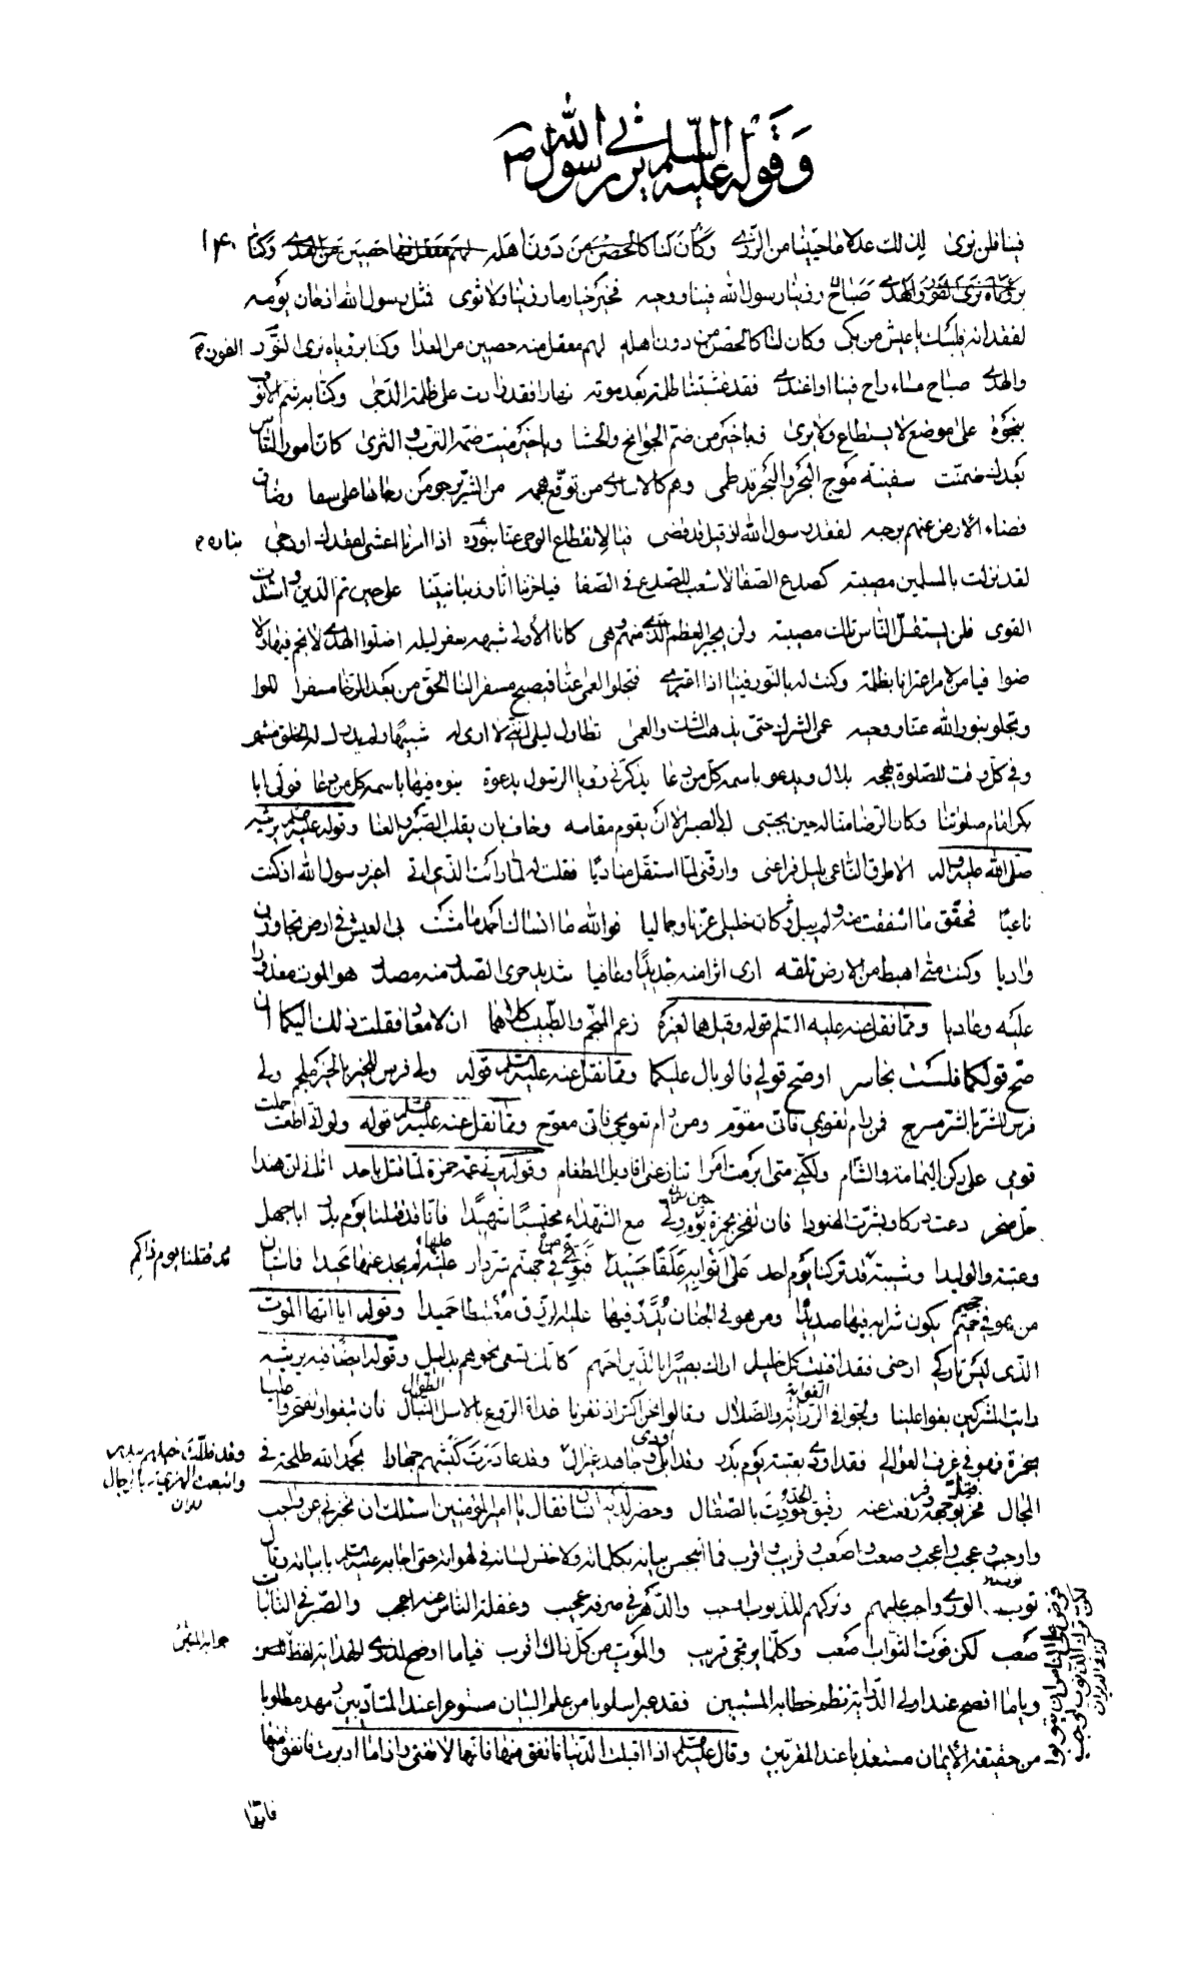 وقوله عليه السلام يرثي رسول الله ص
فينا فلن نرى لذلك عدلا ما حيينا من الردى وكان لنا كالحصن من دون اهله لهم معقل فيها حصين من العدى وكنا ١٤٠
برؤياه نرى النور والهدى صباح رزينا رسول الله فينا ووجهه فخير خيار ما رزينا ولا ثوى فمثل رسول الله اذ حان يومه
لفقدانه فليبك يا عيش من بكى وكان لنا كالحصن من دون اهله لهم معقل منه حصين من العدا وكنا برؤياه نرى النور
والهدى صباح مساء راح فينا او اغتدى فقد غشيتنا ظلمة بعد موته نهارا فقد زادت على ظلمة الدجى وكنا به شم الانوف
بنجوة على موضع لا يستطاع ولا يرى فيا خير من ضم الجوانح والحشا ويا خير ميت ضمه الترب والثرى كان امور الناس
بعدك ضمنت سفينة موج البحر والبحر قد طمى وهم كالاسارى من توقع هجمة من الشر يرجو من رجاها على شفا وضاق
فضاء الأرض عنهم برحبه لفقد رسول الله اذ قيل قد قضى فيا لانقطاع الوحي عنا بنوره اذا امرنا اعشى لفقدك او دجى
لقد نزلت بالمسلمين مصيبة كصدع الصفا لا شعب للصدع في الصفا فيا حزننا انا رزينا نبينا على حين تم الدين واشتدت
القوى فلن يستقل الناس تلك مصيبة ولن يجبر العظم الذي منهم وهى كانا الأولى شبهه سفر ليلة اضلوا الهدى لا نجم فيها ولا
ضوا فيا من لامر اعترانا بظلمة وكنت له بالنور فينا اذا اعترى فتجلو العمى عنا فيصبح مسفرا لنا الحق من بعد الرخا مسفرا اللوا
وتجلو بنور الله عنا ووحيه عمى الشرك حتى يذهب الشك والعمى تطاول ليلي انني لا ارى له شبيها ولم يدرك له الخلق منتهى
وفي كل وقت للصلوة يهيجه بلال ويدعو باسمه كل من دعا يذكرني رؤيا الرسول بدعوة ينوه فيها باسمه كل من دعا فولى ابا
بكر امام صلوتنا وكان الرضا منا له حين يجتبى ابى الصبر الا ان يقوم مقامه وخاف بان يقلب الصبر والعنا وقوله عليه السلم يرثيه
صلى الله عليه واله الا طرق الناعي بليل فراعني وارقني لما استقل مناديا فقلت له لما رأيت الذي اتى اغير رسول الله ان كنت
ناعيا فحقق ما اشفقت منه ولم يبل وكان خليلي عزنا وجماليا فوالله ما انساك احمد ما مشت بي العيش في ارض تجاوزن
واديا وكنت متى اهبط من الارض تلقه ارى اثرا منه جديدا وعافيا شديد جرى الصدر منه مصدر هو الموت معذورا
عليه وعاديا ومما نقل عنه عليه السلم قوله وقيل هما لغيره زعم المنجم والطبيب كلاهما ان لا معاد فقلت ذاك اليكما ان
صح قولكما فلست بخاسر او صح قولي فالوبال عليكما ومما نقل عنه عليه السلم قوله ولي فرس للخير بالخير ملجم ولي
فرس للشر بالشر مسرج فمن رام تقويمي فاني مقوم ومن رام تعويجي فاني معوج ومما نقل عنه عليه السلم قوله ولو اني اطعت حملت
قومي على ركن اليمامة والشام ولكني متى ابرمت امرا تنازعني اقاويل الطغام وقوله يرثي عمه حمزة لما قتل باحد اتاني ان هندا
حل صخر دعت دركا وبشرت الهنودا فان تفخر بحمزة يوم ولى مع الشهداء محتسبا شهيدا فانا قد قتلنا يوم بدر ابا جهل
وعتبة والوليدا وشيبة قد تركنا يوم احد على اثوابه علقا جسيدا فبوئ في جهنم شر دار عليه لم يجد عنها محيدا فاسيان
قد قتلنا يوم ذاكم
من هو في جحيم يكون شرابه فيها صديدا ومن هو في الجنان يدر فيها عليه الرزق مغتبطا حميدا وقوله ايا ايها الموت
الذي ليس تاركي ارحني فقد افنيت كل خليل اراك بصيرا بالذين احبهم كانك تسعى نحوهم بدليل وقوله ايضا فيه يرثيه
رايت المشركين بغوا علينا ولجوا في الغواية والضلال وقالوا نحن اكثر اذ نفرنا غداة الروع بالاسل الطوال فان يبغوا ويفتخروا علينا
بحمزة فهو في غرف العوالي فقد اودى بعتبة يوم بدر وقد ابلى وجاهد غير ال وقد غادرت كبشهم جهارا بحمد الله طلحة في
المجال فخر لوجهه ورفعت عنه رقيق الحد حودث بالصقال وحضر لديه انسان فقال يا امير المؤمنين اسئلك ان تخبرني عن واجب
واوجب وعجب واعجب وصعب واصعب وقريب واقرب فما انبجس بيانه بكلماته ولا خنس لسانه في لهواته حتى اجابه عليه السلم بابياته وقال
توب الورى واجب عليهم وتركهم للذنوب اوجب والدهر في صرفه عجيب وغفلة الناس عنه اعجب والصبر في النائبات
صعب لكن فوت الثواب اصعب وكلما يرتجى قريب والموت من كل ذاك اقرب فيا ما اوضح لذوي الهداية لفظ
ويا ما افصح عند اولي الدراية نظم خطابه المستبين فقد عبر اسلوبا من علم البيان مستوعرا عند المتأدبين ومهد مطلوبا
من حقيقة الايمان مستعذبا عند المقربين وقال عليه السلم اذا اقبلت الدنيا فانفق منها فانها لا تفنى واذا ما ادبرت فانفق منها
فانها